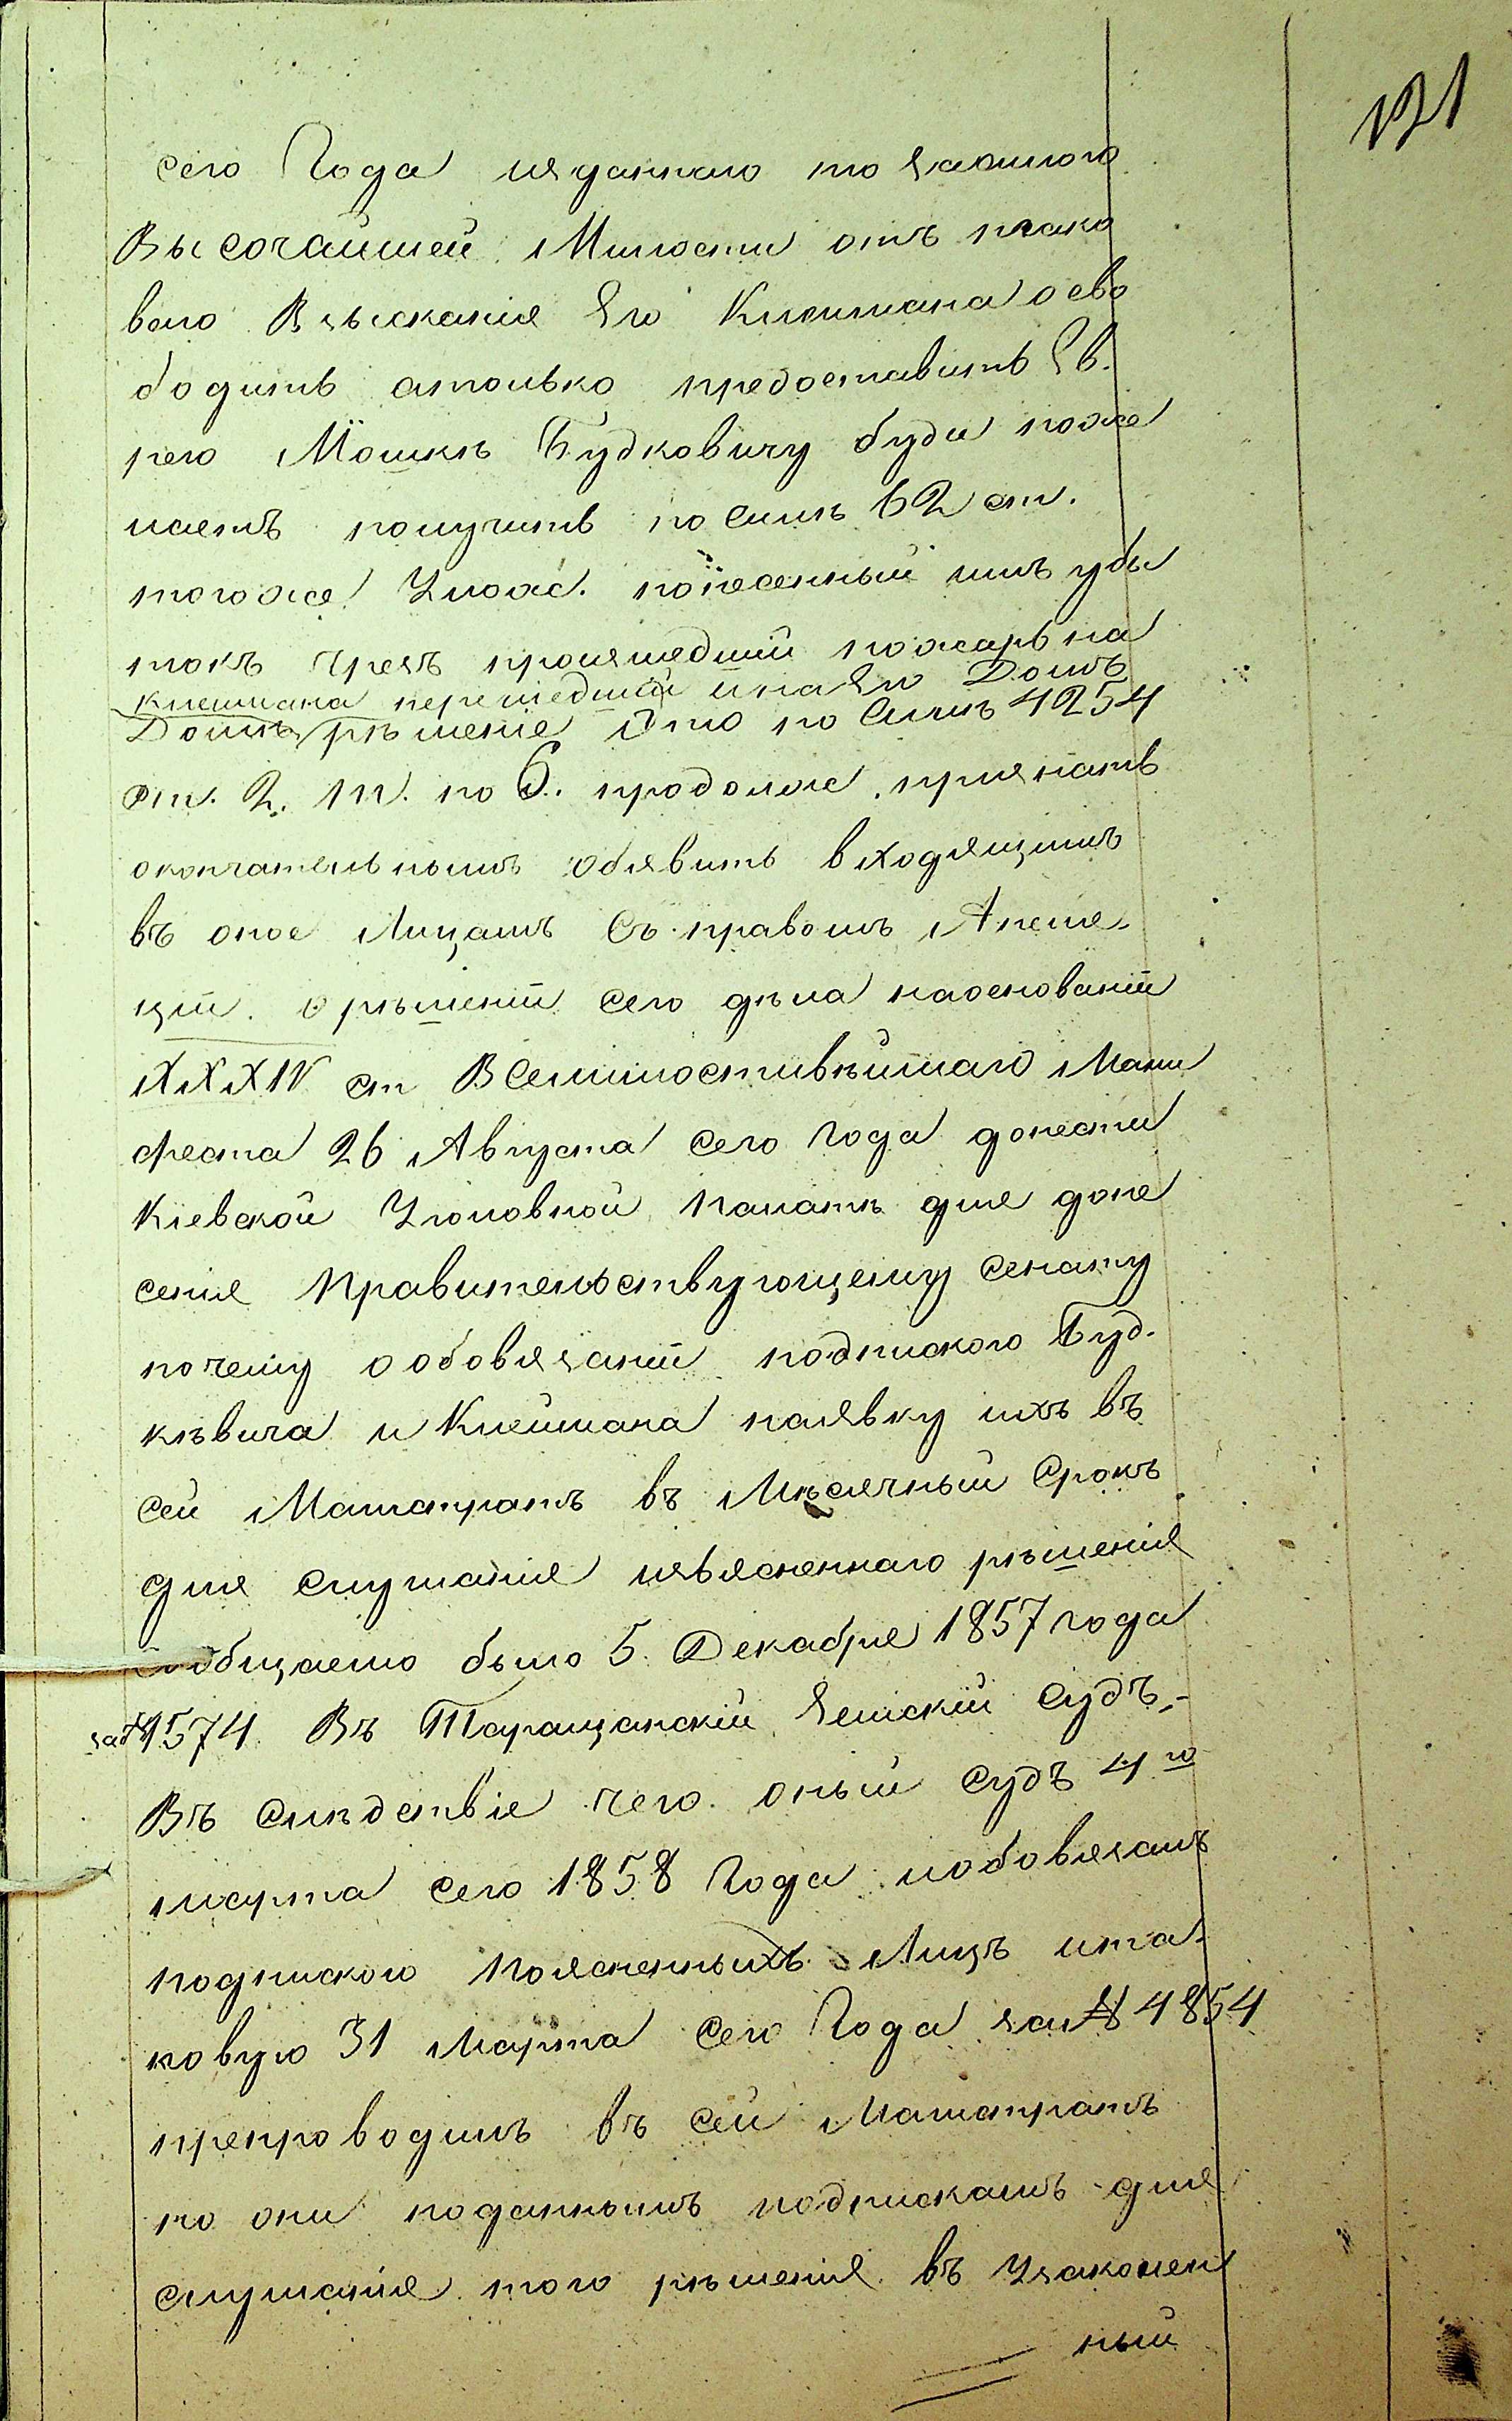 131
сего Года изданнаго то законного
Высочайшей Милости отъ тако
вого Взысканія Его Клеймана осво
бодить атолько предоставить Ев.
рею Мошкѣ Будковичу буди поже
лаетъ получить по Силѣ 62 ст.
тогоже Улож. понесенный имъ убы
токъ чрезъ произшедшій пожаръ на
Клеймана перешедшій инаЕго Домъ
Домъ рѣшеніе Это по Силѣ 4254
ст. 2. Т. по 6. продолж. признать
окончательнымъ обявить входящимъ
въ оное Лицамъ Съ правомъ Апеля.
ціи. о рѣшеніи сего дѣла наоснованіи
XXXIV ст ВСемилостивѣйшаго Мани
феста 26 Августа сего Года донести
Кіевской Уголовной Палатѣ для доне
сенія Правительствующему Сенату
почему ообовязаніи подпискою Буд.
кѣвича и Клеймана наявку ихъ въ
сей Магистратъ въ Мѣсячный Срокъ
для слушанія изъясненнаго рѣшенія
Сообщаемо было 5. Декабря 1857 года
за№ 1574. Въ Таращанскій Земскій Судъ,-
Въ Слѣдствіе чего оный Судъ 4го
марта сего 1858 Года иобовязалъ
подпискою Поясненныхъ Лицъ ита.
ковую 31 Марта Сего Года за№ 4854
препроводилъ въ сей Магистратъ
но они поданнымъ подпискамъ для
слушанія того рѣшенія въ Узаконен
ный